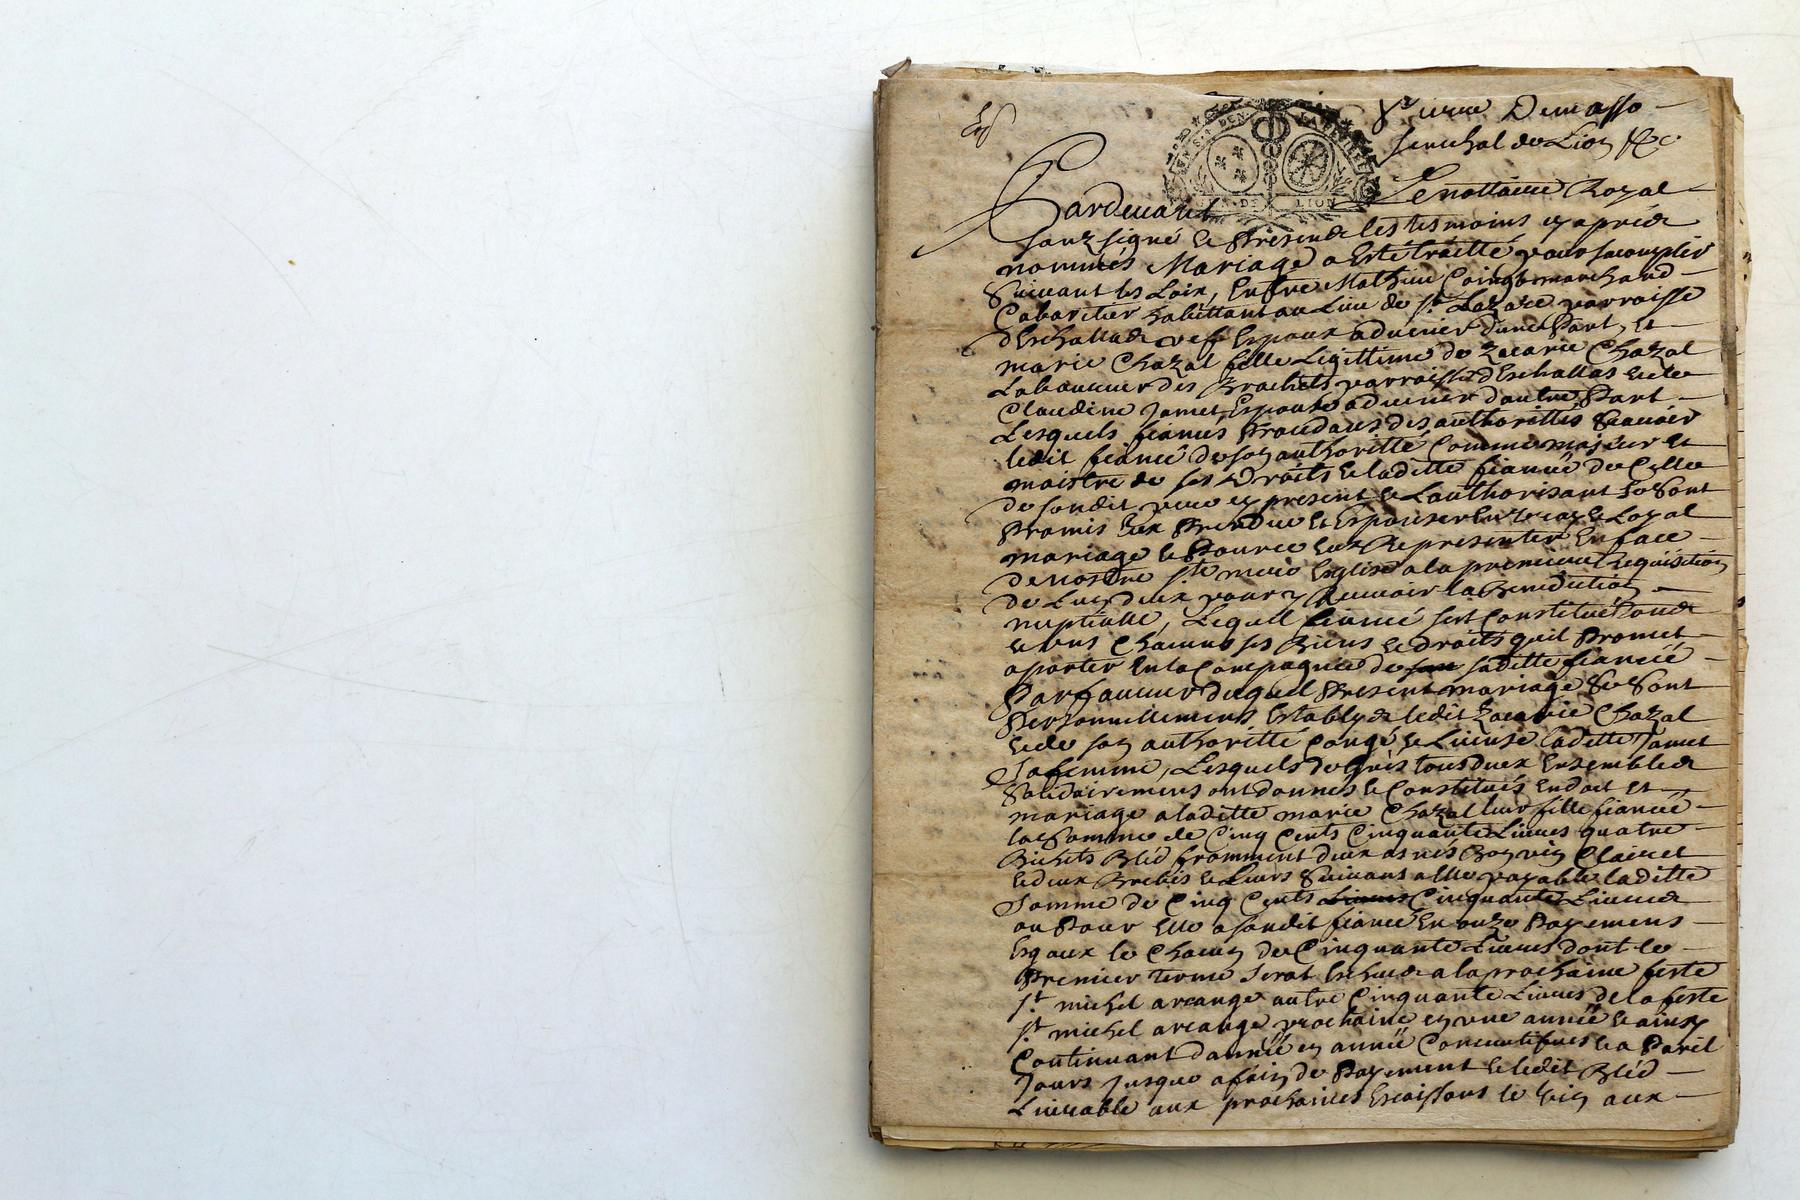 Senechal de Lion &c
GEN. DE LION
Pardevant Le nottaire Royal
souzsigné et Presends les tesmoins cy apréz
nommés Mariage a Esté traitté pour sacomplir
Suivant les Loix, Entre Mathieu marchand
Cabaretier habittant au Lieu de St. Lazare parroisse
d'Eschallas Espoux advenir d'une Part, et
marie Chazal fille Legittime de Zacarie Chazal
Laboureur des Brachets parroisse d'Eschallas et de
Claudine Jamet Espouse advenir d'autre Part
Lesquels fiancés Procedans des authorittés Scavoir
ledit fiancé de son authoritté Comme majeur et
maistre de ses Droits et laditte fiancée de Celle
de sondit pere cy present et Lauthorisant se Sont
Promis Eux Prendre et Espouser En vray et Loyal
mariage et Pource Eux Representer En face
de nostre Ste mere Esglise a la premiere Requisition
de Lun deux pour y Recevoir la Benediction
nuptialle, Lequel fiancé sest Constitué
ses Biens et droits quil Promet
aporter En la Compagnie de sa laditte fiancée
Par faveur duquel Present mariage Se Sont
Personnellement Establys ledit Zacarie Chazal
et de son authoritté Congé et License laditte Jamet
Sa femme, Lesquels de Grés tous deux Ensemble
Solidairement ont donnés et Constitués En dot et
mariage a laditte marie Chazal leur fille fiancée
la Somme de Cinq Cents Cinquante Livres quatre
Bichets Bléd fromment deux asnés Bon vin Clairet
et deux Brebis et Leurs Suivans a elle payable laditte
Somme de Cinq Cents Livres Cinquante Livres
ou Pour Elle a sondit fiancé En onze Payemens
Esgaux le Chacun de Cinquante Livres dont le
Premier terme Serat Escheu a la prochaine feste
St. michel arcange autre Cinquante Livres de la feste
St. michel arcange prochaine en une année et ainsy
Continuant d'année en année Consecutifves et a Pareil
Jours Jusque a fain de Payement et ledit Bléd
Livrable aux prochaines le vin aux